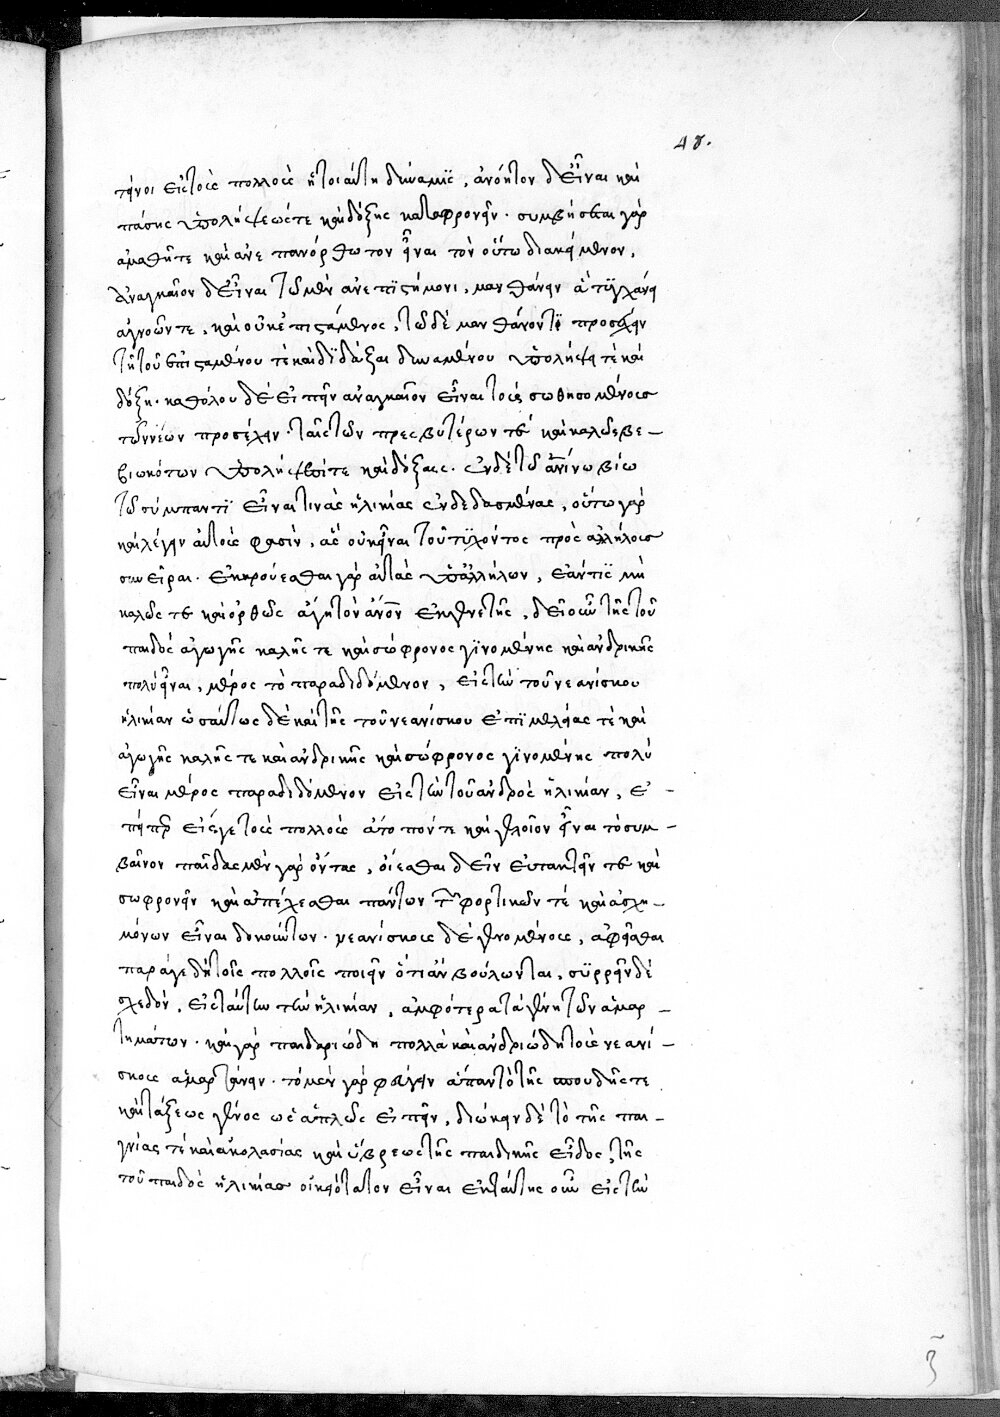 48.
τείνοι εἰς τοὺς πολλοὺς ἡ τοιαύτη δύναμϊς, ἀνόητον δ' εἶναι καὶ
πάσης ὑπολήψεώς τε καὶ δόξης καταφρονεῖν· συμβήσεται γὰρ
ἀμαθῆ τε καὶ ἀνεπανόρθωτον εἶναι τὸν οὕτω διακείμενον.
Ἀναγκαῖον δ' εἶναι τῶ μὲν ἀνεπϊστήμονι, μανθάνειν ἃ τυγχάνει
ἀγνοῶν τε, καὶ οὐκ ἐπιστάμενος, τῶ δὲ μανθάνοντϊ προσέχειν
τῆ τοῦ ἐπισταμένου τὲ καὶ διδάξαι δυναμένου ὑπολήψει τὲ καὶ
δόξη· καθόλου δὲ εἰπεῖν ἀναγκαῖον εἶναι τοὺς σωθησομένους
τῶν νέων προσέχειν ταῖς τῶν πρεσβυτέρων τε καὶ καλῶς βε-
βιωκότων ὑπολήψεσί τε καὶ δόξαις. ἐν δὲ τῶ ἀνίνω βίω
τῶ σύμπαντϊ εἶναι τινὰς ἡλικίας ἐνδεδασμένας, οὕτω γὰρ
καὶ λέγειν αὐτοὺς φασὶν, ἃς οὐκ εἶναι τοῦ τυχόντος πρὸς ἀλλήλους
συνεῖραι. ἐκκρούεσθαι γὰρ αὐτὰς ὑπ' ἀλλήλων, ἐάν τϊς μὴ
καλῶς τε καὶ ὀρθῶς ἄγη τὸν ἄνον ἐκ γενετῆς, δεῖ οὖν τῆς τοῦ
παιδὸς ἀγωγῆς καλῆς τε καὶ σώφρονος γινομένης καὶ ἀνδρικῆς
πολὺ εἶναι, μέρος τὸ παραδιδόμενον, εἰς τὴν τοῦ νεανίσκου
ἡλικίαν ὡσαύτως δὲ καὶ τῆς τοῦ νεανίσκου ἐπϊμελείας τὲ καὶ
ἀγωγῆς καλῆς τε καὶ ἀνδρικῆς καὶ σώφρονος γινομένης πολὺ
εἶναι μέρος παραδιδόμενον εἰς τὴν τοῦ ἀνδρὸς ἡλικίαν, ἐ-
πείπερ εἴς γε τοὺς πολλοὺς ἄτοπόν τε καὶ γελοῖον εἶναι τὸ συμ-
βαῖνον παῖδας μὲν γὰρ ὄντας, οἴεσθαι δεῖν εὐτακτεῖν τε καὶ
σωφρονεῖν καὶ ἀπέχεσθαι πάντων τῶν φορτικῶν τὲ καὶ ἀσχη-
μόνων εἶναι δοκούντων· νεανίσκους δὲ γενομένους, ἀφεῖσθαι
παρά γε δὴ τοῖς πολλοῖς ποιεῖν ὅτι ἂν βούλωνται, συρρεῖν δὲ
σχεδὸν, εἰς ταύτην τὴν ἡλικίαν, ἀμφότερα τὰ γένη τῶν ἁμαρ-
τημάτων· καὶ γὰρ παιδαριώδη πολλὰ καὶ ἀνδριώδη τοὺς νεανί-
σκους ἁμαρτάνειν· τὸ μὲν γὰρ φεύγειν ἅπαν τὸ τῆς σπουδῆς τε
καὶ τάξεως γένος ὡς ἁπλῶς εἰπεῖν, διώκειν δὲ τὸ τῆς παι-
γνίας τὲ καὶ ἀκολασίας καὶ ὕβρεως τῆς παιδικῆς εἶδος, τῆς
τοῦ παιδὸς ἡλικίας οἰκειότατον εἶναι ἐκ ταύτης οὖν εἰς τὴν